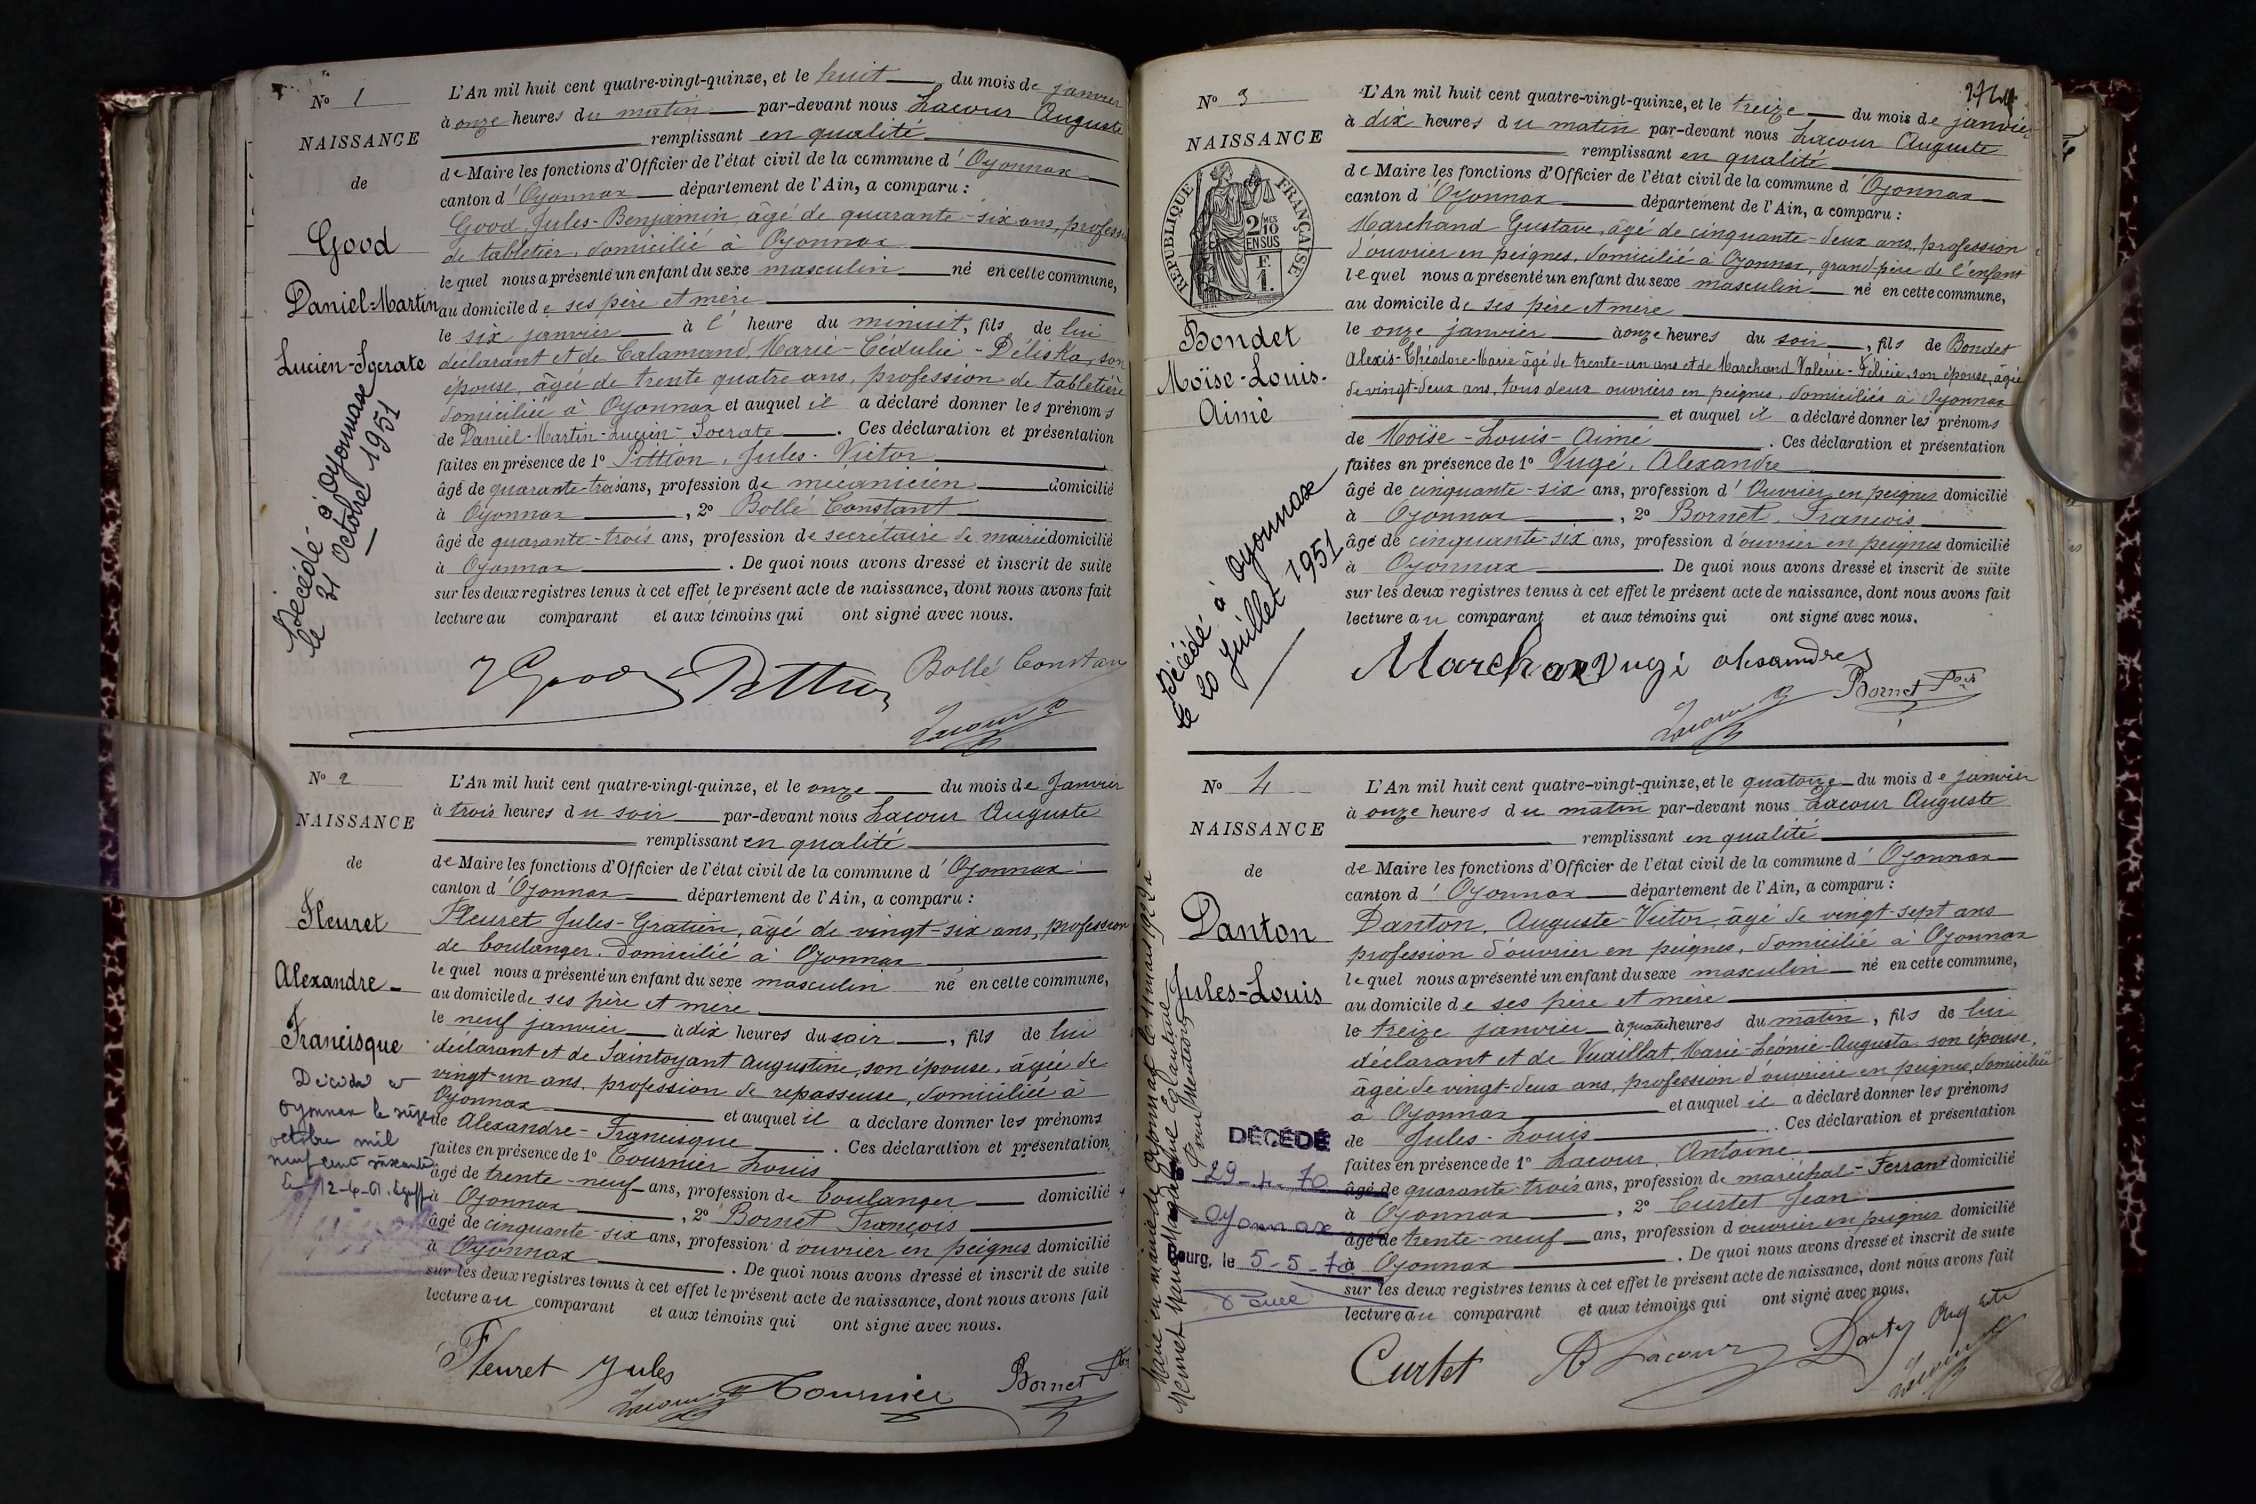 N° 1
NAISSANCE
de
Good
Daniel-Martin
Lucien-Socrate
Décédé à Oyonnax
le 31 octobre 1951
L'An mil huit cent quatre-vingt-quinze, et le huit du mois de janvier
à onze heures du matin par-devant nous Lacour Auguste
remplissant en qualité
de Maire les fonctions d'Officier de l'état civil de la commune d'Oyonnax
canton d'Oyonnax département de l'Ain, a comparu :
Good, Jules-Benjamin, âgé de quarante-six ans, profession
de tabletier, domicilié à Oyonnax
lequel nous a présenté un enfant du sexe masculin né en cette commune,
au domicile de ses père et mère
le six janvier à l'heure du minuit, fils de lui
déclarant et de Calamand, Marie-Cédulie-Déliska, son
épouse, âgée de trente quatre ans, profession de tabletière
domiciliée à Oyonnax et auquel il a déclaré donner les prénoms
de Daniel-Martin-Lucien-Socrate. Ces déclaration et présentation
faites en présence de 1° Pittion, Jules-Victor
âgé de quarante-trois ans, profession de mécanicien domicilié
à Oyonnax, 2° Bollé Constant
âgé de quarante-trois ans, profession de secrétaire de mairie domicilié
à Oyonnax. De quoi nous avons dressé et inscrit de suite
sur les deux registres tenus à cet effet le présent acte de naissance, dont nous avons fait
lecture au comparant et aux témoins qui ont signé avec nous.
J Good Pittion Bollé Constant
Lacour
N° 2
NAISSANCE
de
Fleuret
Alexandre-
Francisque
Décédé à
Oyonnax le
octobre mil
neuf cent soixante
Le 12-4-61
L'An mil huit cent quatre-vingt-quinze, et le onze du mois de Janvier
à trois heures du soir par-devant nous Lacour Auguste
remplissant en qualité
de Maire les fonctions d'Officier de l'état civil de la commune d'Oyonnax
canton d'Oyonnax département de l'Ain, a comparu :
Fleuret Jules-Gratien, âgé de vingt-six ans, profession
de boulanger, domicilié à Oyonnax
lequel nous a présenté un enfant du sexe masculin né en cette commune,
au domicile de ses père et mère
le neuf janvier à dix heures du soir, fils de lui
déclarant et de Saintoyant Augustine, son épouse, âgée de
vingt-un ans, profession de repasseuse, domiciliée à
Oyonnax et auquel il a déclaré donner les prénoms
de Alexandre-Francisque. Ces déclaration et présentation
faites en présence de 1° Tournier Louis
âgé de trente-neuf ans, profession de boulanger domicilié
à Oyonnax, 2° Bornet François
âgé de cinquante-six ans, profession d'ouvrier en peignes domicilié
à Oyonnax. De quoi nous avons dressé et inscrit de suite
sur les deux registres tenus à cet effet le présent acte de naissance, dont nous avons fait
lecture au comparant et aux témoins qui ont signé avec nous.
Fleuret Jules
Lacour Tournier Bornet Fois
N° 3
NAISSANCE
RÉPUBLIQUE FRANÇAISE
2/10 MES
EN SUS
F.
1.
Bondet
Moïse-Louis-
Aimé
Décédé à Oyonnax
le 20 Juillet 1951
L'An mil huit cent quatre-vingt-quinze, et le treize du mois de janvier
à dix heures du matin par-devant nous Lacour Auguste
remplissant en qualité
de Maire les fonctions d'Officier de l'état civil de la commune d'Oyonnax
canton d'Oyonnax département de l'Ain, a comparu :
Marchand Gustave, âgé de cinquante-deux ans, profession
d'ouvrier en peignes, domicilié à Oyonnax, grand-père de l'enfant
lequel nous a présenté un enfant du sexe masculin né en cette commune,
au domicile de ses père et mère
le onze janvier à onze heures du soir, fils de Bondet
Alexis-Théodore-Marie âgé de trente-un ans et de Marchand Valérie-Félicie, son épouse, âgée
de vingt-deux ans, tous deux ouvriers en peignes, domiciliés à Oyonnax
et auquel il a déclaré donner les prénoms
de Moïse-Louis-Aimé. Ces déclaration et présentation
faites en présence de 1° Vugé, Alexandre
âgé de cinquante-six ans, profession d'Ouvrier en peignes domicilié
à Oyonnax, 2° Bornet, François
âgé de cinquante-six ans, profession d'ouvrier en peignes domicilié
à Oyonnax. De quoi nous avons dressé et inscrit de suite
sur les deux registres tenus à cet effet le présent acte de naissance, dont nous avons fait
lecture au comparant et aux témoins qui ont signé avec nous.
Marchand Vugé alexandre
Lacour Bornet Fois
N° 4
NAISSANCE
de
Danton
Jules-Louis
DÉCÉDÉ
29-4-70
Oyonnax
Bourg, le 5-5-70
L'An mil huit cent quatre-vingt-quinze, et le quatorze du mois de janvier
à onze heures du matin par-devant nous Lacour Auguste
remplissant en qualité
de Maire les fonctions d'Officier de l'état civil de la commune d'Oyonnax
canton d'Oyonnax département de l'Ain, a comparu :
Danton, Auguste-Victor, âgé de vingt-sept ans
profession d'ouvrier en peignes, domicilié à Oyonnax
lequel nous a présenté un enfant du sexe masculin né en cette commune,
au domicile de ses père et mère
le treize janvier à quatre heures du matin, fils de lui
déclarant et de Vuaillat, Marie-Léonie-Augusta son épouse,
âgée de vingt-deux ans, profession d'ouvrière en peignes, domiciliée
à Oyonnax et auquel il a déclaré donner les prénoms
de Jules-Louis. Ces déclaration et présentation
faites en présence de 1° Lacour, Antoine
âgé de quarante-trois ans, profession de maréchal-Ferrant domicilié
à Oyonnax, 2° Curtet Jean
âgé de trente-neuf ans, profession d'ouvrier en peignes domicilié
à Oyonnax. De quoi nous avons dressé et inscrit de suite
sur les deux registres tenus à cet effet le présent acte de naissance, dont nous avons fait
lecture au comparant et aux témoins qui ont signé avec nous.
Curtet A Lacour Danton Auguste
Lacour